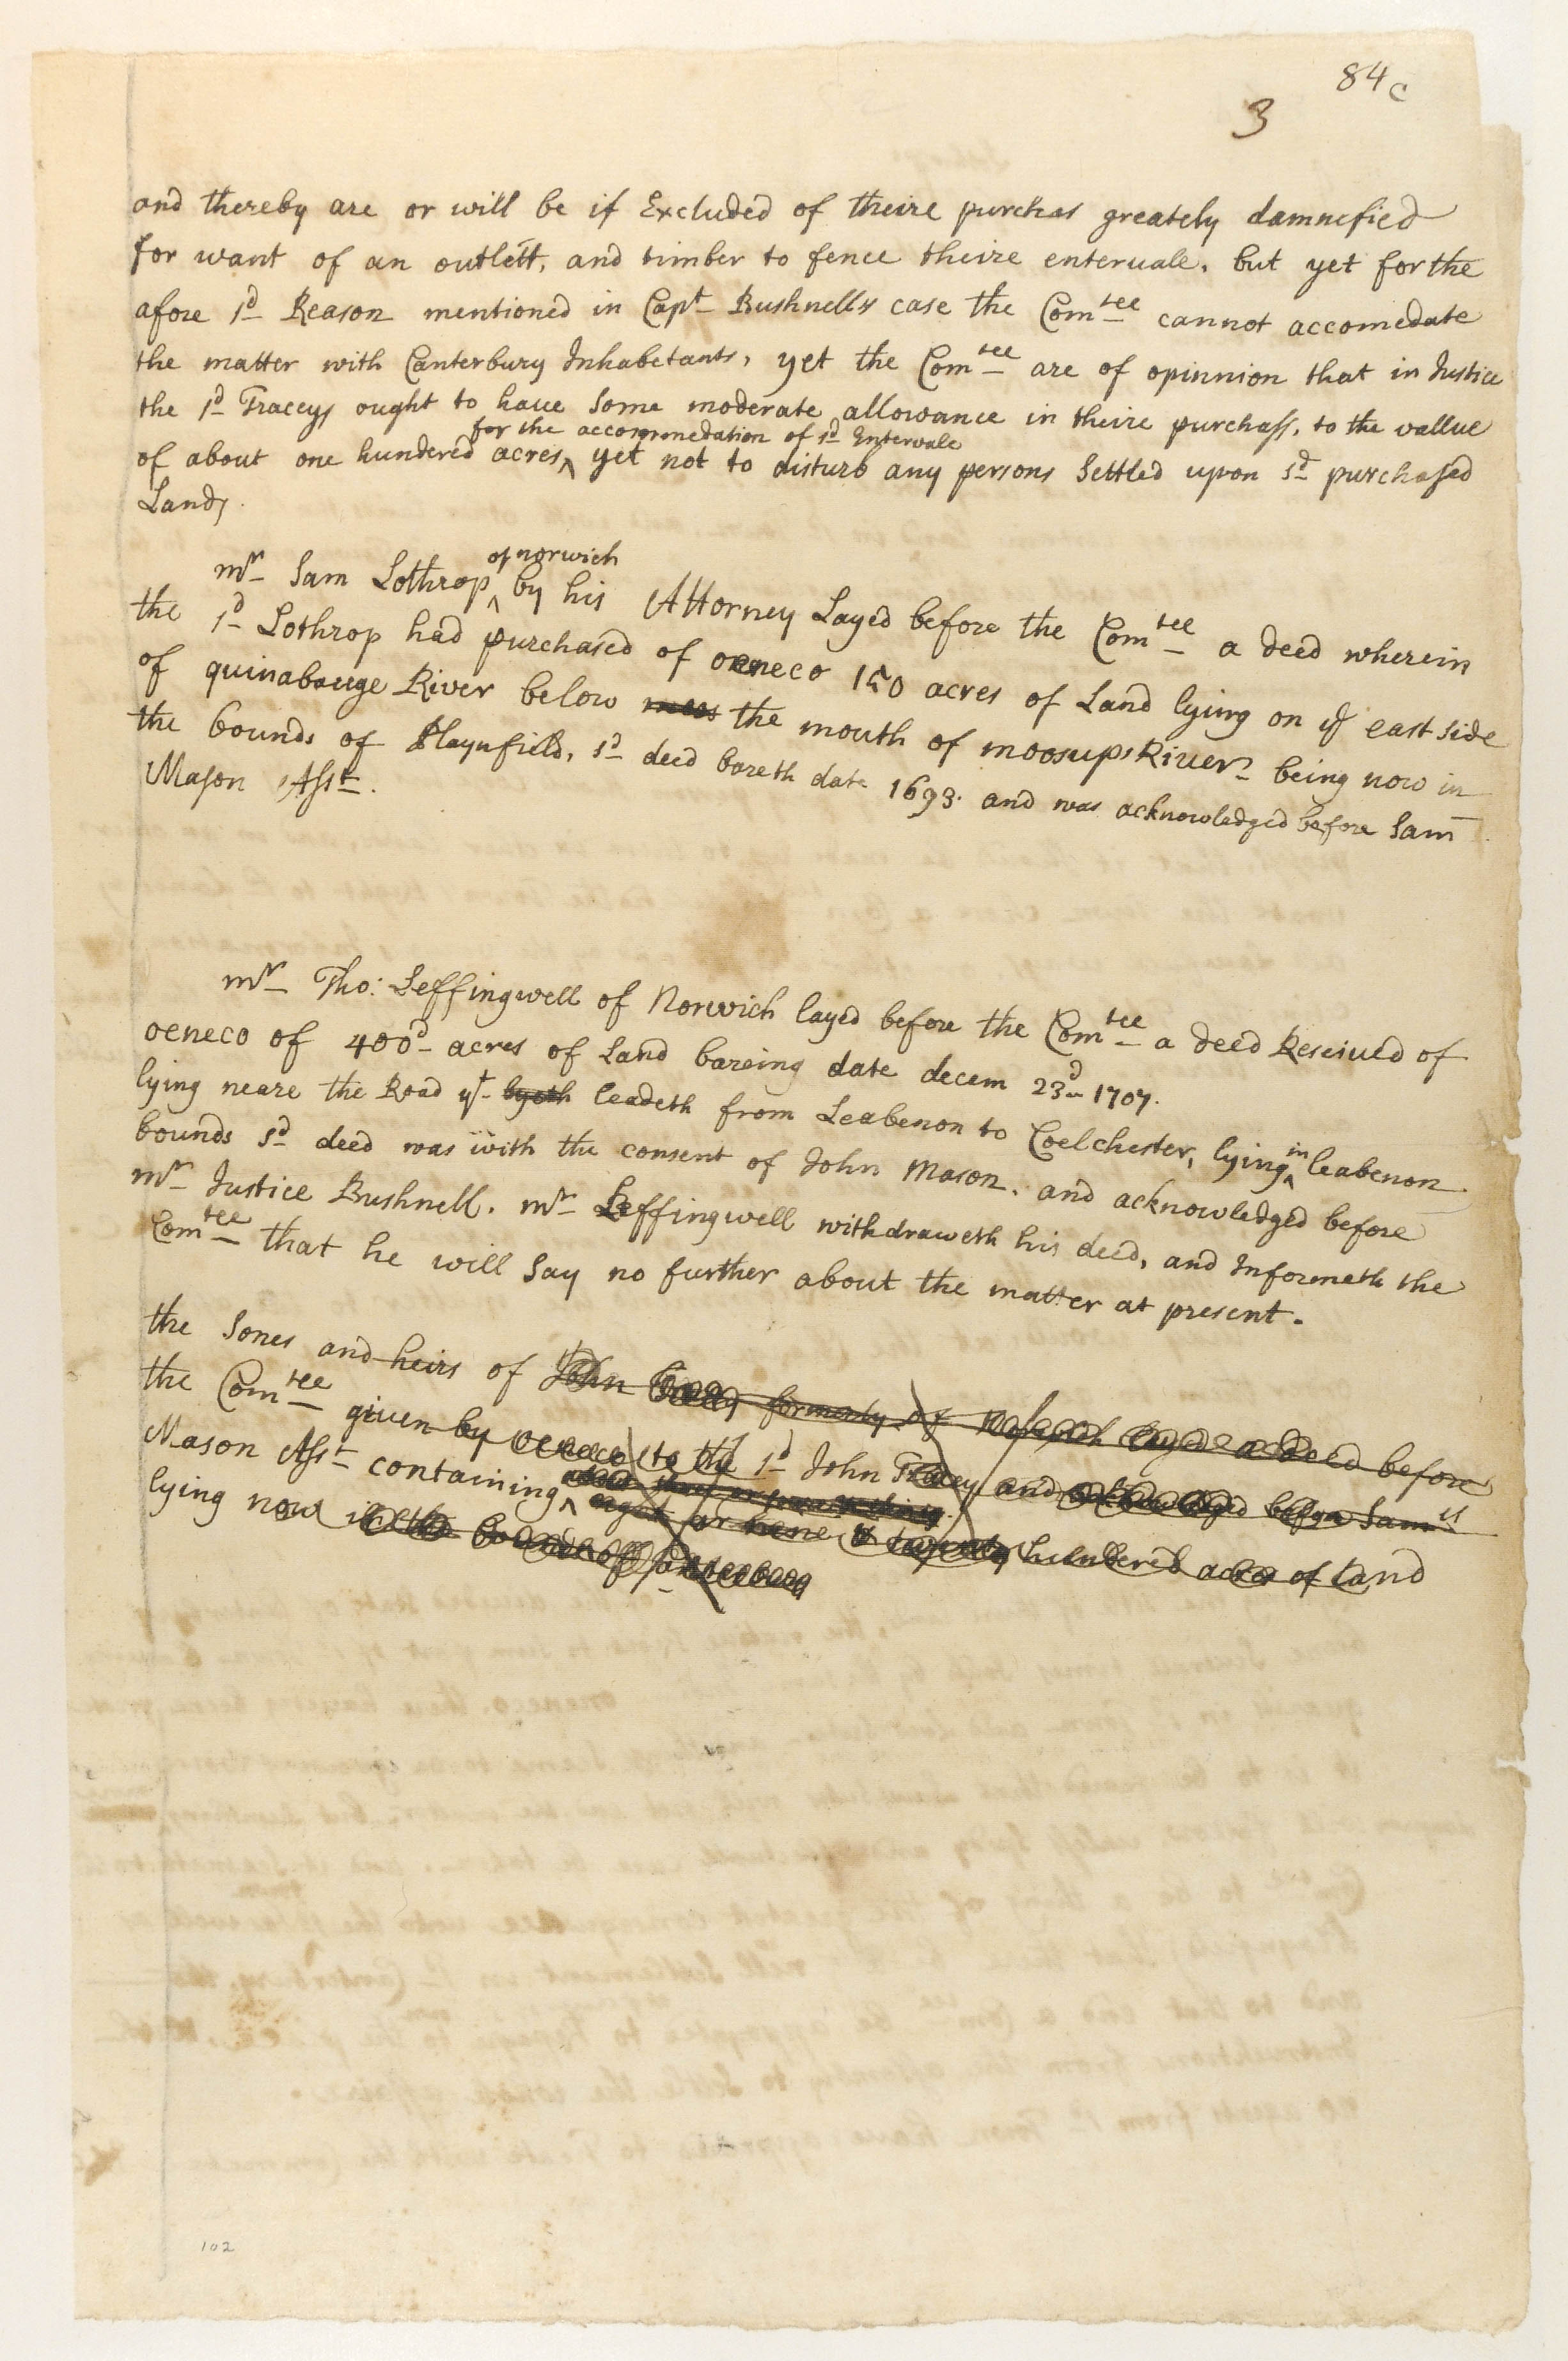 84c
3
and thereby are or will be if Excluded of theire purchas greately damnefied
for want of an outlett, and timber to fence theire entervale. but yet for the
afore sd Reason mentioned in Capt Bushnells case the Comtee cannot accomedate
the matter with Canterbury Inhabetants, yet the Comtee are of opinnion that in Justice
the sd Traceys ought to have some moderate allowance in theire purchass, to the vallue
for the accommedation of sd Entervale
of about one hundered acres ‸ yet not to disturb any persons Settled upon sd purchased
Lands.
of norwich
mr Sam Lothrop ‸ by his Attorney Layed before the Comtee a deed wherein
the sd Lothrop had purchased of oeneco 150 acres of Land lying on ye east side
of quinabauge River below the mouth of moosups River being now in
the bounds of Playnfield, sd deed bareth date 1693. and was acknowledged before Sam
Mason Asst.
mr Tho: Leffingwell of Norwich layed before the Comtee a deed Reseived of
oeneco of 400d acres of Land bareing date decem 23d 1707.
lying neare the Road yt lyeth leadeth from Leabenon to Coelchester, lying ‸ in leabenon
bounds sd deed was with the consent of John Mason. and acknowledged before
mr Justice Bushnell. mr Leffingwell withdraweth his deed, and Informeth the
Comtee that he will say no further about the matter at present.
the Sones and heirs of John Tracey formerly of Norwich layed a deed before
the Comtee given by oeneco to the sd John Tracey and acknowledged before Samll
Mason Asst containing ‸ eight or nine hundered acres of Land
lying now in the bounds of Canterbury
102